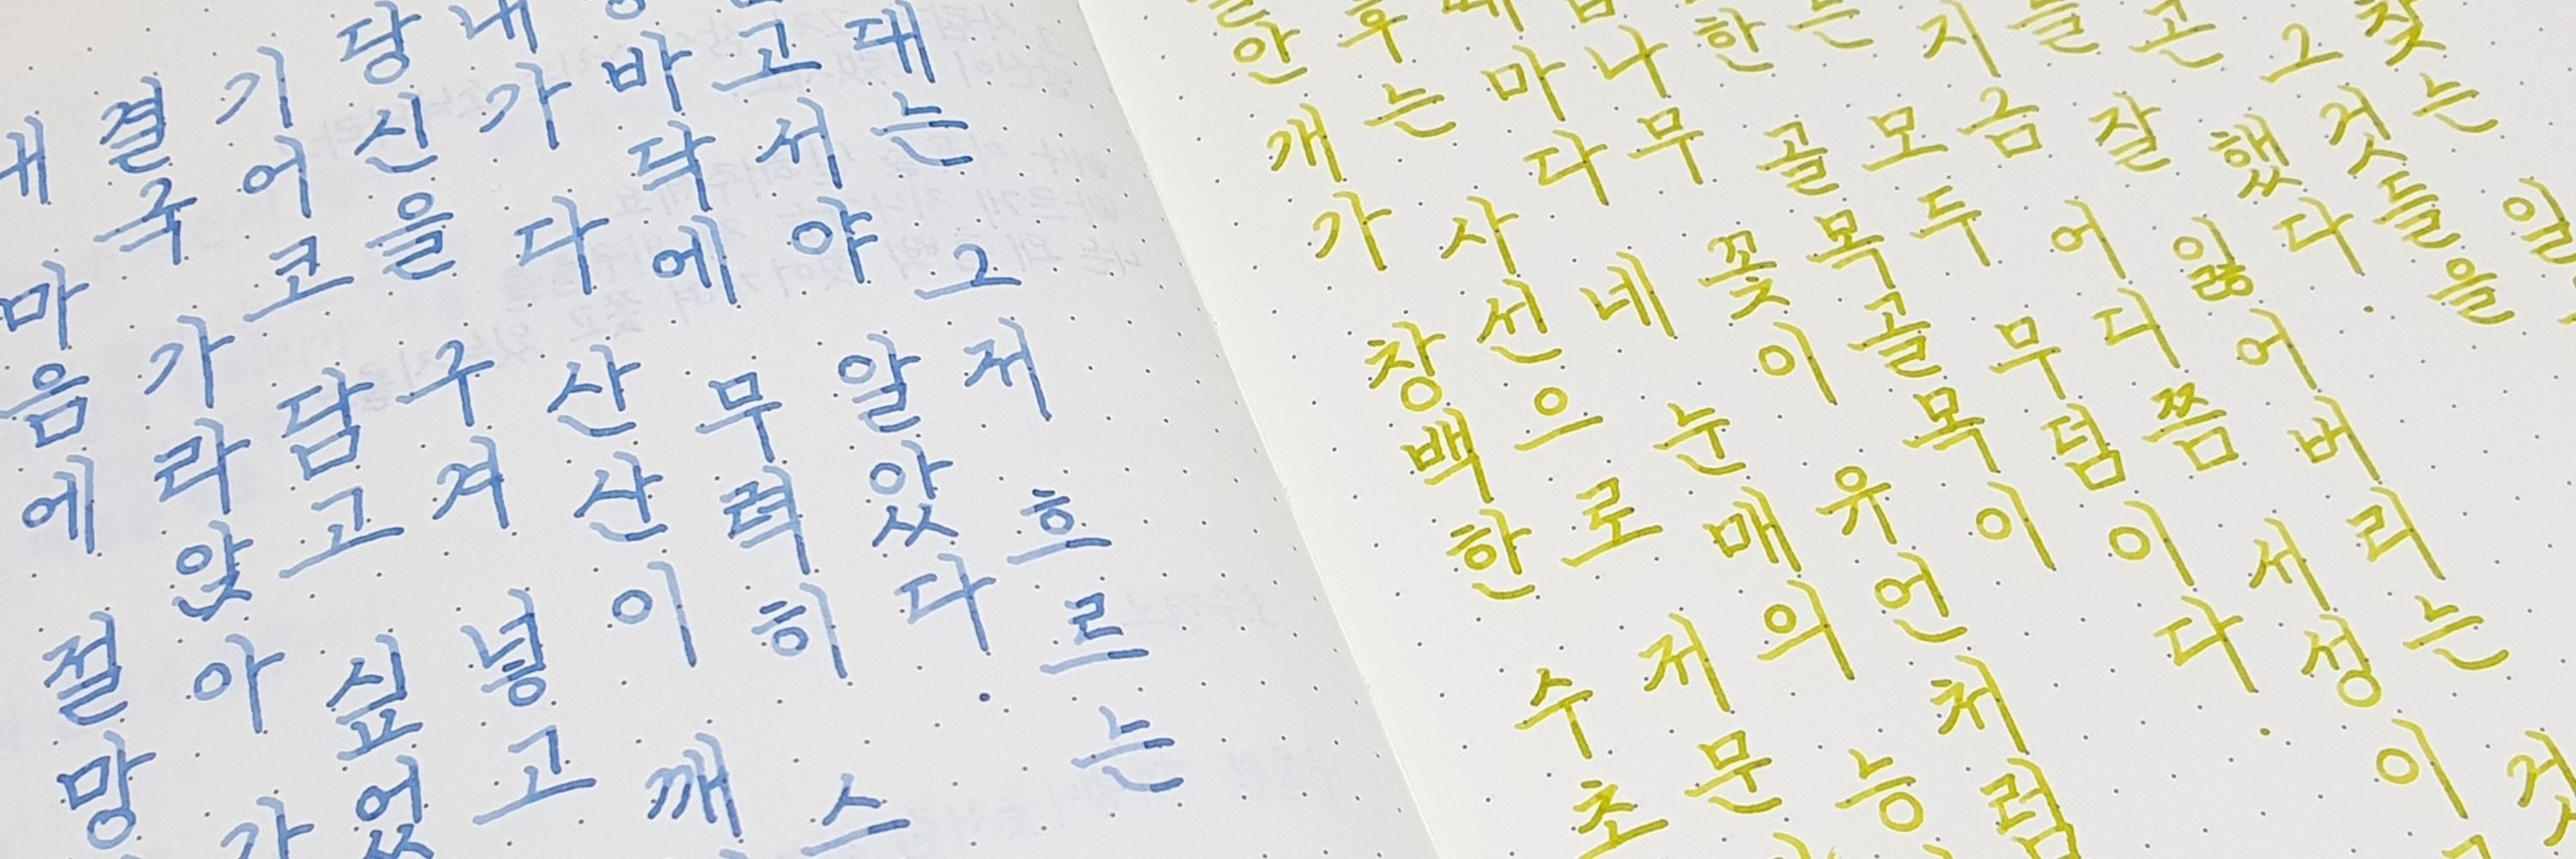 게 마음에 절망
결국 가라앉아 가
기어코 담고 싶었
당신을 구겨 넣고
내가 다 산산이 깨
바닥에 무력히 스
고서야 알았다.
대는 그저 흐르는
안개가 창백한 수초
후는 사선으로 저문
마다 네 눈매의 능
나무 꽃이 유언처럼
한 골목골목이
는 모두 무덤이다.
지금 어디쯤 서성이
들 잘 잃어버리는 것
곤 했다.
그것들을
찾는 일